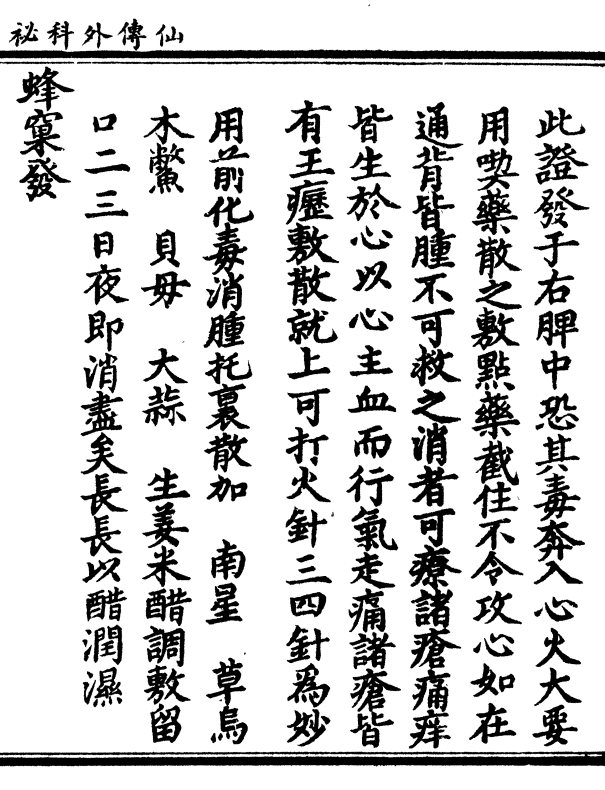 仙傳外科祕
此證發于右脾中恐其毒奔入心火大要
用喫藥散之敷點藥截住不令攻心如在
通背皆腫不可救之消者可療諸瘡痛痒
皆生於心以心主血而行氣走痛諸瘡皆
有王瀝敷散就上可打火針三四針爲妙
用前化毒消腫托裏散加 南星 草烏
木鱉 貝母 大蒜 生姜米醋調敷留
口二三日夜即消盡矣長長以醋潤濕
蜂窠發